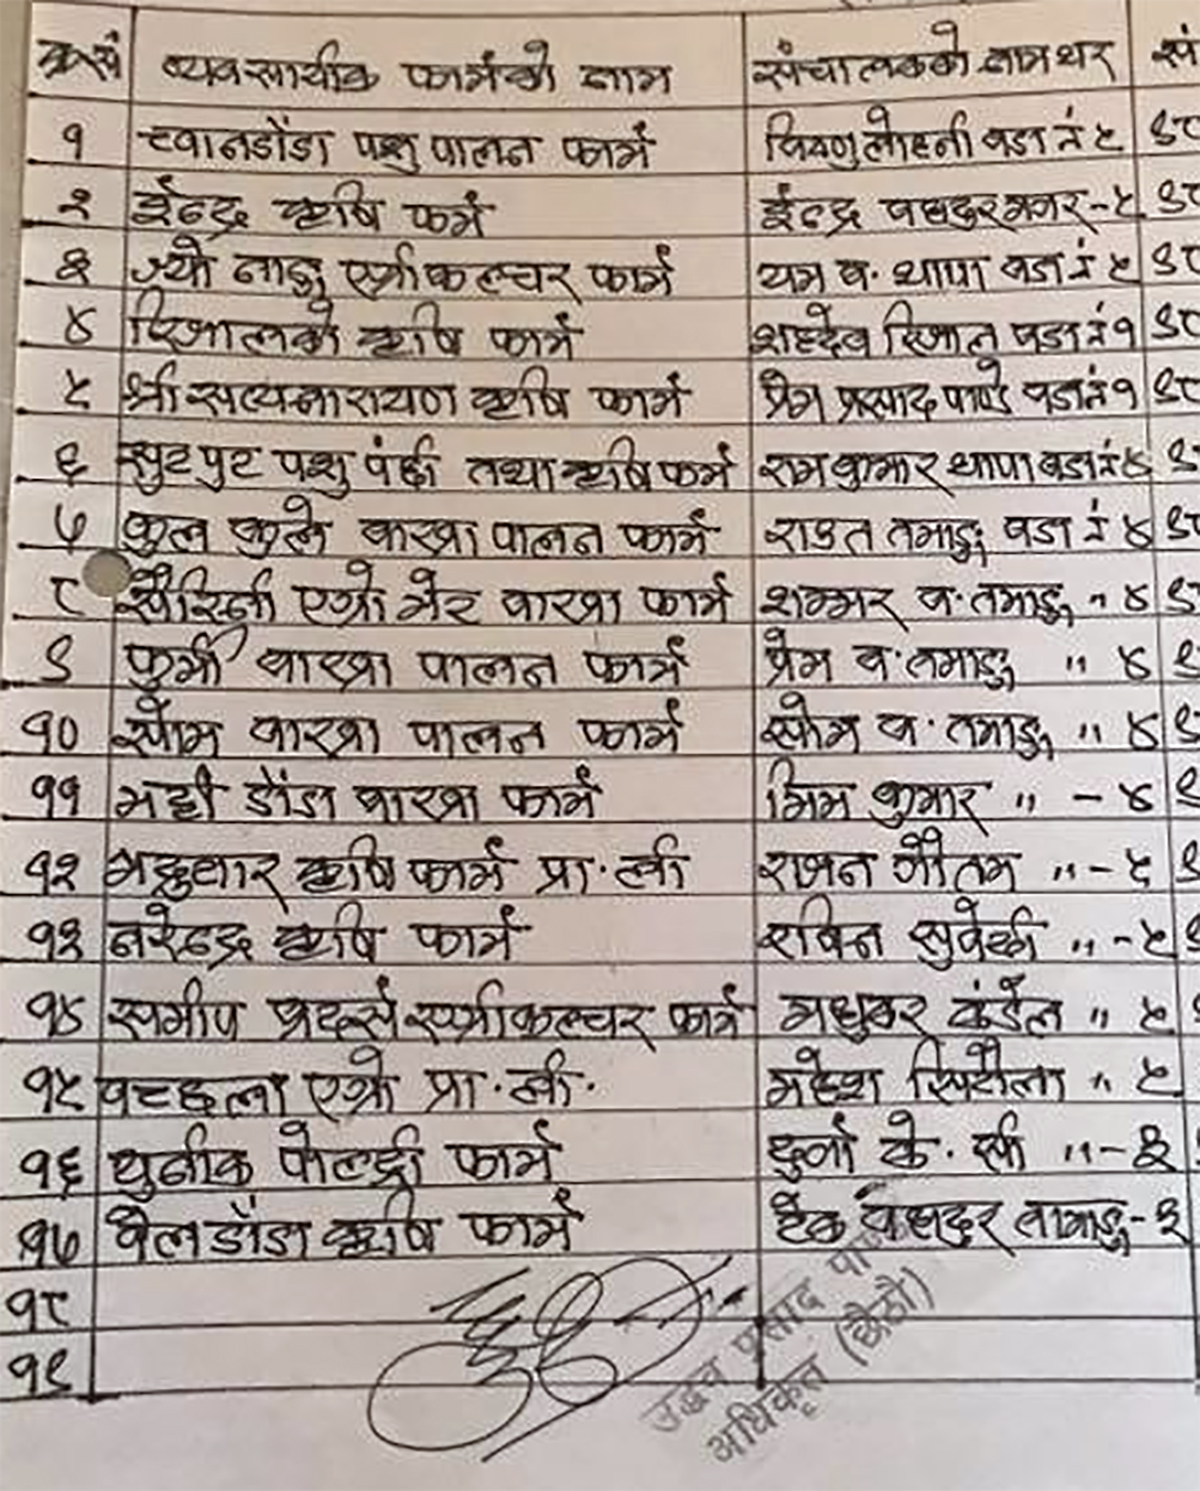 क्र.सं व्यवसायीक फार्मको नाम संचालकको नाम थर सं
१ च्वानडाँडा पशु पालन फार्म विष्णु लोहनी वडा नं ५ ९८
२ ईन्द्र कृषि फर्म ईन्द्र वहादुर मगर-५ ९८
३ ज्यो लाङ्गु एग्रीकल्चर फार्म यम व. थापा वडा नं ५ ९८
४ रिजालको कृषि फार्म शहदेव रिजाल वडा नं १ ९८
५ श्री सत्यनारायण कृषि फार्म प्रेम प्रसाद पाण्डे वडा नं १ ९८
६ सुट पुट पशु पंछी तथा कृषि फर्म राम कुमार थापा वडा नं ४
७ कुल कुले वाख्रा पालन फार्म राउत तमाङ्ग वडा नं ४
८ सैरिनी एग्रो भेट वाख्रा फार्म शम्मर व. तमाङ्ग " ४
९ फुर्मी वाख्रा पालन फार्म प्रेम व. तमाङ्ग " ४
१० सोम वाख्रा पालन फार्म सोम व. तमाङ्ग " ४
११ भट्टी डाँडा वाख्रा फार्म भिम कुमार " - ४
१२ कृषि फार्म प्रा. ली राजन गौतम " - ५
१३ नरेन्द्र कृषि फार्म रविन सुवेदी " - ५
१४ समीप एग्रीकल्चर फार्म मधुकर कंडेल " ५
१५ एग्रो प्रा. ली. महेश सिटौला " ५
१६ युनीक पोल्ट्री फार्म दुर्गा के. सी " - ३
१७ वेलडाँडा कृषि फार्म टेक वहादुर तामाङ्ग - ३
१८
१९
उद्धव प्रसाद
अधिकृत (छैठौं)